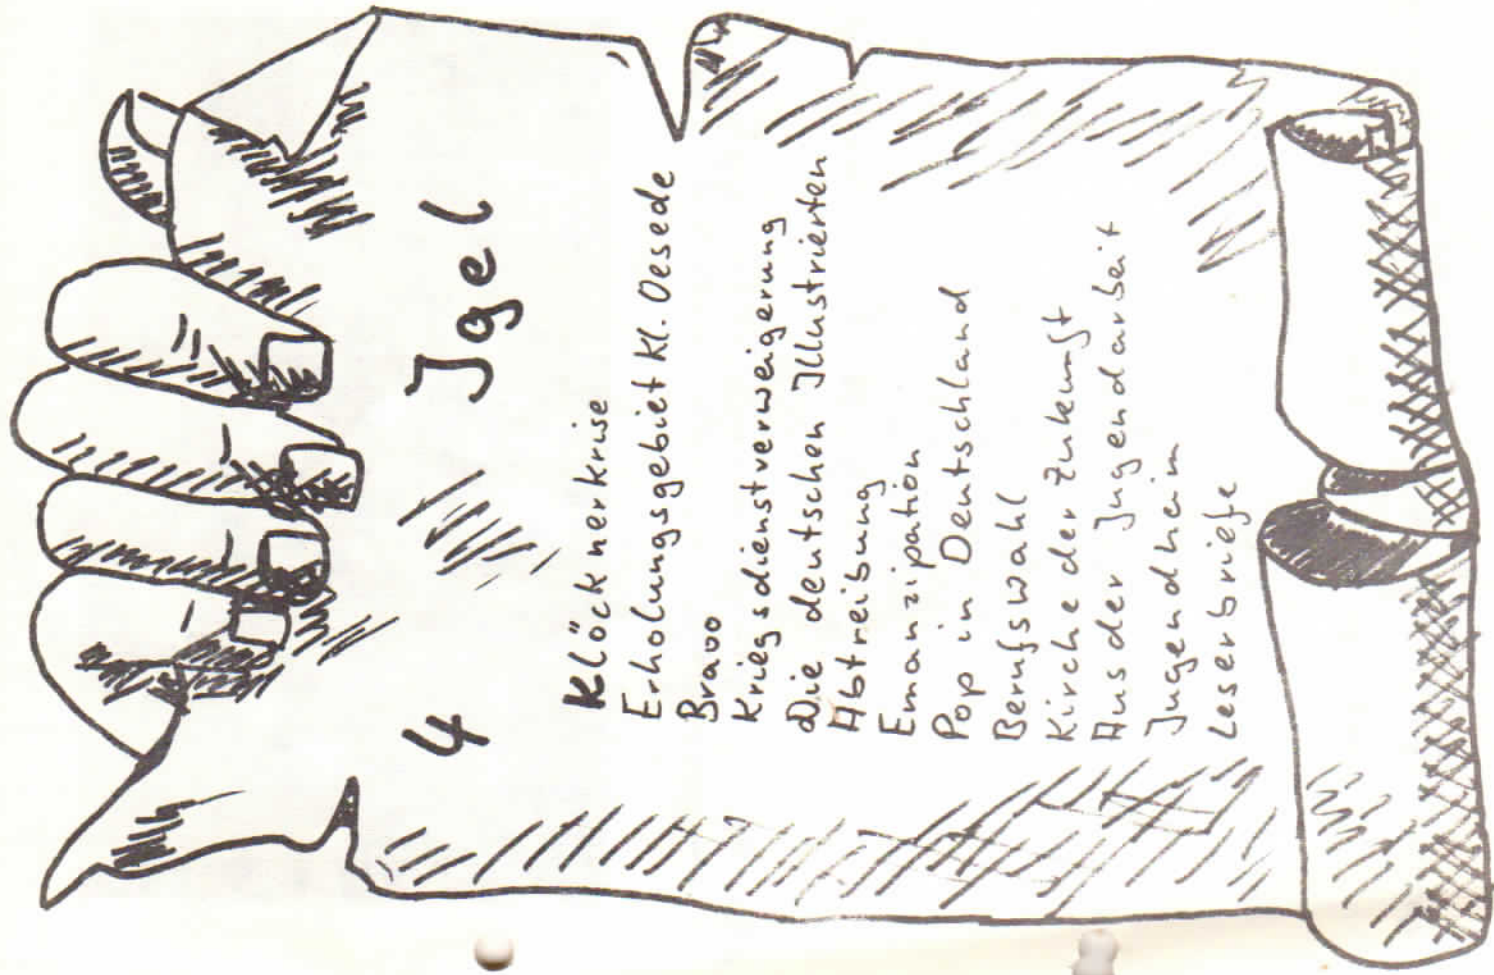 4 Igel
Klöcknerkrise
Erholungsgebiet Kl. Oesede
Bravo
Kriegsdienstverweigerung
Die deutschen Illustrierten
Abtreibung
Emanzipation
Pop in Deutschland
Berufswahl
Kirche der Zukunft
Aus der Jugendarbeit
Jugendheim
Leserbriefe